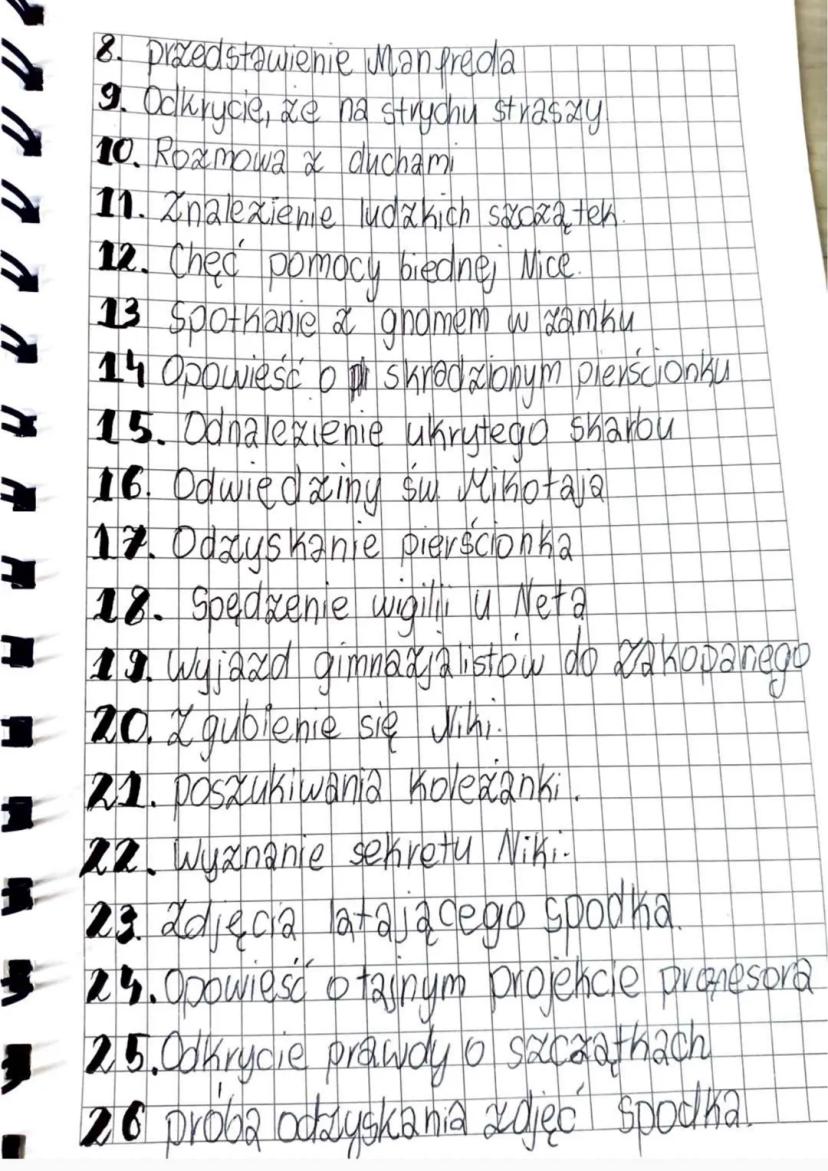 8. przedstawienie Manfreda
9. Odkrycie, że na strychu straszy
10. Rozmowa z duchami
11. Znalezienie ludzkich szczątek.
12. Chęć pomocy biednej Nice.
13 Spotkanie z gnomem w zamku
14 Opowieść o skradzionym pierścionku
15. Odnalezienie ukrytego skarbu
16. Odwiedziny św. Mikołaja
17. Odzyskanie pierścionka
18. Spędzenie wigilii u Neta
19. Wyjazd gimnazjalistów do zakopanego
20. Zgubienie się Niki.
21. poszukiwania koleżanki.
22. Wyznanie sekretu Niki.
23. Zdjęcia latającego spodka.
24. Opowieść o tajnym projekcie profesora
25. Odkrycie prawdy o szczątkach
26 próba odzyskania zdjęć spodka.